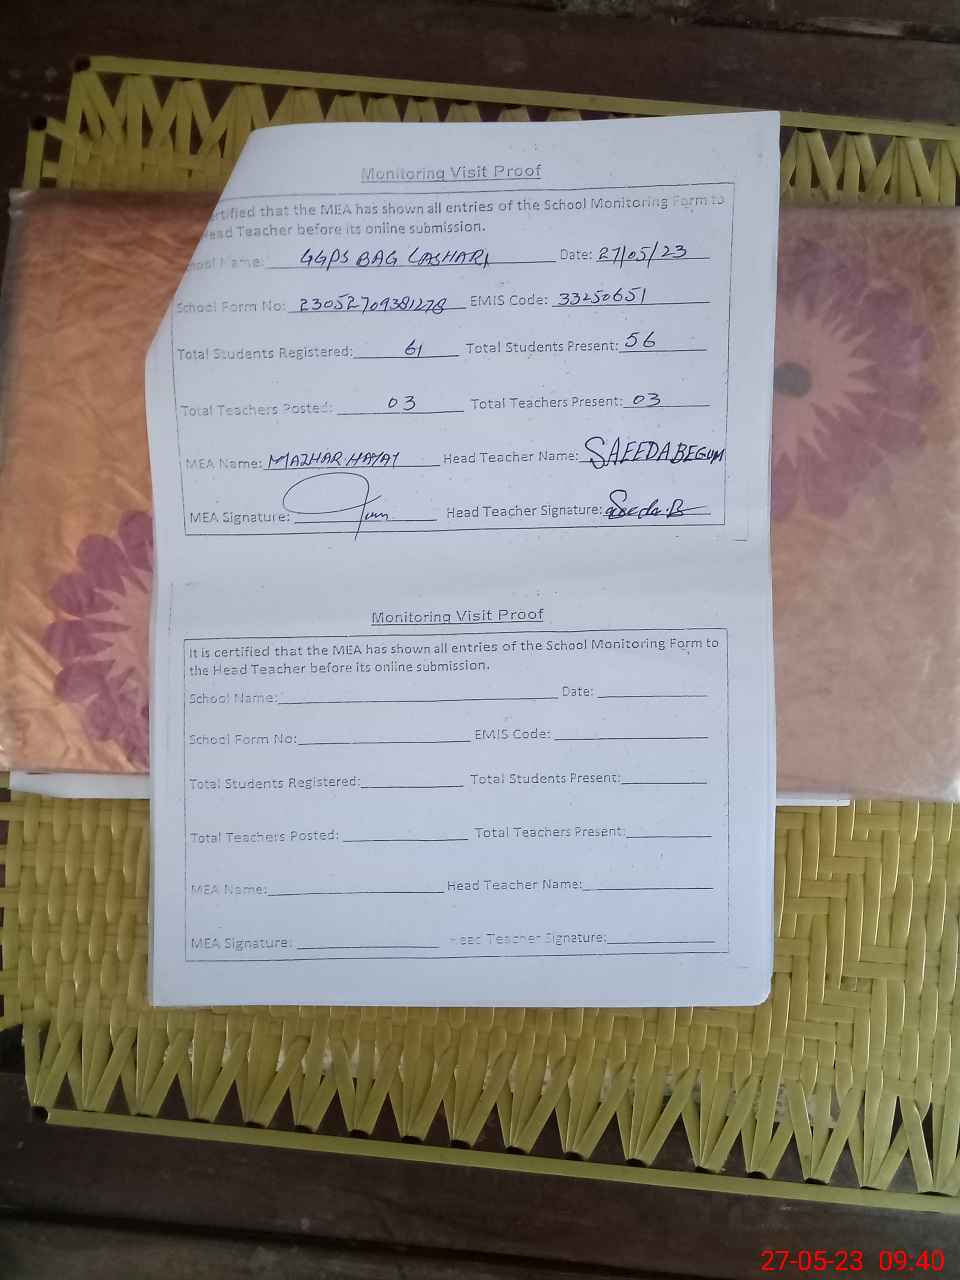 Monitoring Visit Proof
ertified that the MEA has shown all entries of the School Monitoring Form to
Head Teacher before its online submission.
hool Name: GGPS BAG LASHARI Date: 27/05/23
School Form No: 23052709381278 EMIS Code: 33250651
Total Students Registered: 61 Total Students Present: 56
Total Teachers Posted: 03 Total Teachers Present: 03
MEA Name: MAZHAR HAYAT Head Teacher Name: SAEEDA BEGUM
MEA Signature: Head Teacher Signature: Saeeda.B
Monitoring Visit Proof
It is certified that the MEA has shown all entries of the School Monitoring Form to
the Head Teacher before its online submission.
School Name: Date:
School Form No: EMIS Code:
Total Students Registered: Total Students Present:
Total Teachers Posted: Total Teachers Present:
MEA Name: Head Teacher Name:
MEA Signature: Head Teacher Signature:
27-05-23 09:40